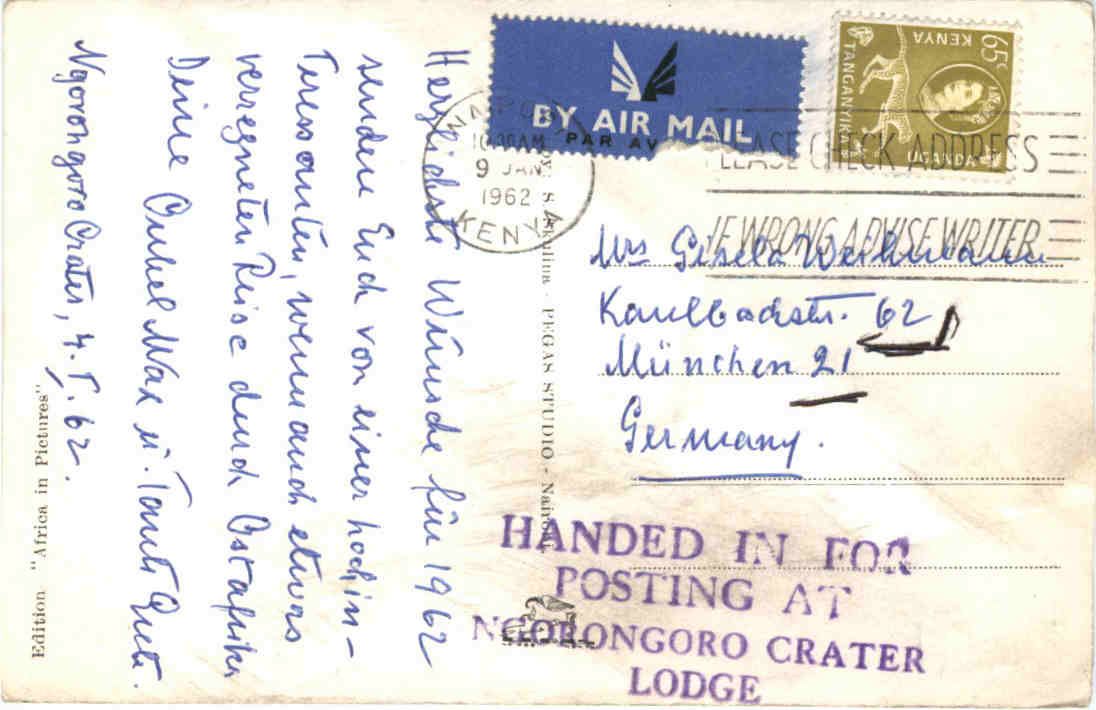 Herzlichste Wünsche für 1962
senden Euch von einer hochin-
teressanten, wenn auch etwas
verregneten Reise durch Ostafrika
Deine Onkel Max u. Tante Grete.
Ngorongoro Crater, 4. I. 62.
Edition "Africa in Pictures"
PEGAS STUDIO - Nairobi
BY AIR MAIL
PAR AV
65c
KENYA
TANGANYIKA
UGANDA
10:30AM
9 JAN
1962
KENYA
PLEASE CHECK ADDRESS
IF WRONG ADVISE WRITER
Mrs Gisela
Kaulbachstr. 62
München 21
Germany.
HANDED IN FOR
POSTING AT
NGORONGORO CRATER
LODGE